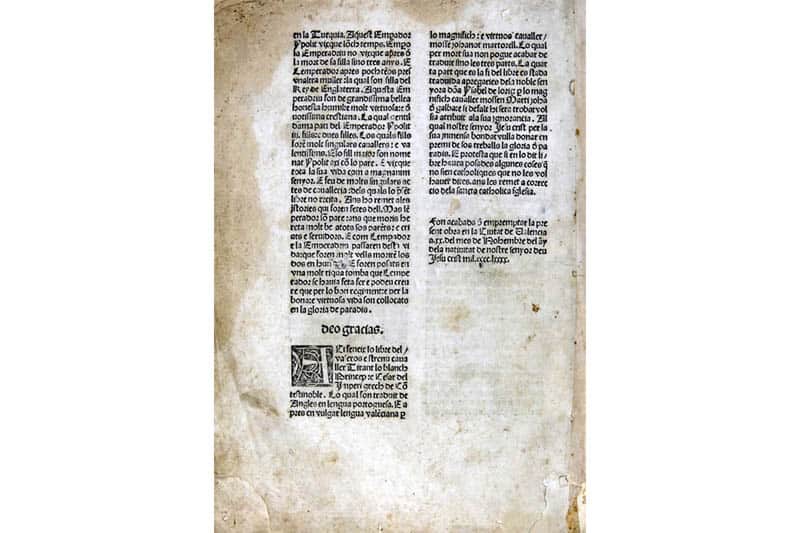 en la Turquia. Aquest Emperador
Ypolit visque lõch temps. Empo
la Emperadriu no visque apres õ
la mort de sa filla sino tres anys. E
Lemperador apres poch tẽps pres
vna altra muller: la qual fon filla del
Rey de Englaterra. Aquesta Em
peradriu fon de grandissima bellea
honesta humbe molt virtuosa: e õ
uotissima crestiana. La qual gentil
dama pari del Emperador Ypolit
iii. fills: e dues filles. Los quals fills
forẽ molt singulars cauallers: e va
lentissims. E lo fill maior fon nome
nat Ypolit axi cõ lo pare. E visque
tota la sua vida com a magnanim
senyor. E feu de molts singulars ac
tes de caualleria: dels quals lo pñt
libre no recita. Ans ho remet a les
istories qui foren fetes dell. Mas lẽ
perador lõ pare ans que moris he
reta molt be a tots sos parẽts: e cri
ats e seruidors. E com Lemperador
e la Emperadriu passaren desta vi
da: que foren molt vells moritẽ los
dos en hun
E foren posats en
vna molt riqua tomba que Lempe
rador se hauia feta fer e podeu creu
re que per lo bon regimẽt: e per la
bona: e virtuosa vida son collocats
en la gloria de paradis.
deo gracias.
Aci feneix lo libre del
valeros e strenu caua
ller Tirant lo blanch
Princep: e Cesar del
Inperi grech de Cõ
testinoble. Lo qual fon traduit de
Angles en lengua portoguesa. E a
pres en vulgar lengua valẽciana p
lo magnifich: e virtuos caualler
mosse iohanot martorell. Lo qual
per mort sua non pogue acabar de
traduir sino les tres parts. La quar
ta part que es la fi del libre es stada
traduida a pregaries de la noble sen
yora dõa Ysabel de loriç: p lo mag
nifich caualler mossen Marti iohã
õ galba: e si defalt hi sera trobat vol
sia atribuit a la sua ignorancia. Al
qual nostre senyor Jesu crist per la
sua immensa bondat vulla donar en
premi de sos treballs la gloria õ pa
radis. E protesta que si en lo dit li
bre haura posades algunes coses q̃
no sien catholiques que no les vol
hauer dites. ans les remet a correc
cio de la sancta catholica iglesia.
Fon acabada õ empremptar la pre
sent obra en la Ciutat de Valencia
a .xx. del mes de Nohembre del ãy
de la natiuitat de nostre senyor deu
Jesu crist mil.cccc.lxxxx.